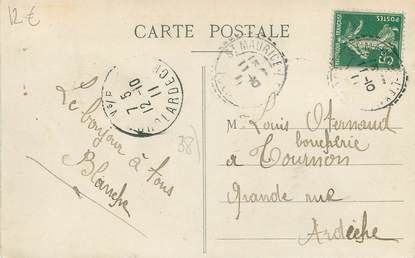 12 €
CARTE POSTALE
ST MAURICE
11-10
11
ARDECHE
7 S/5
12-10
11
38)
Le bonjour à tous
Blanche
M. Louis
boucherie
a Tournon
grande rue
Ardèche